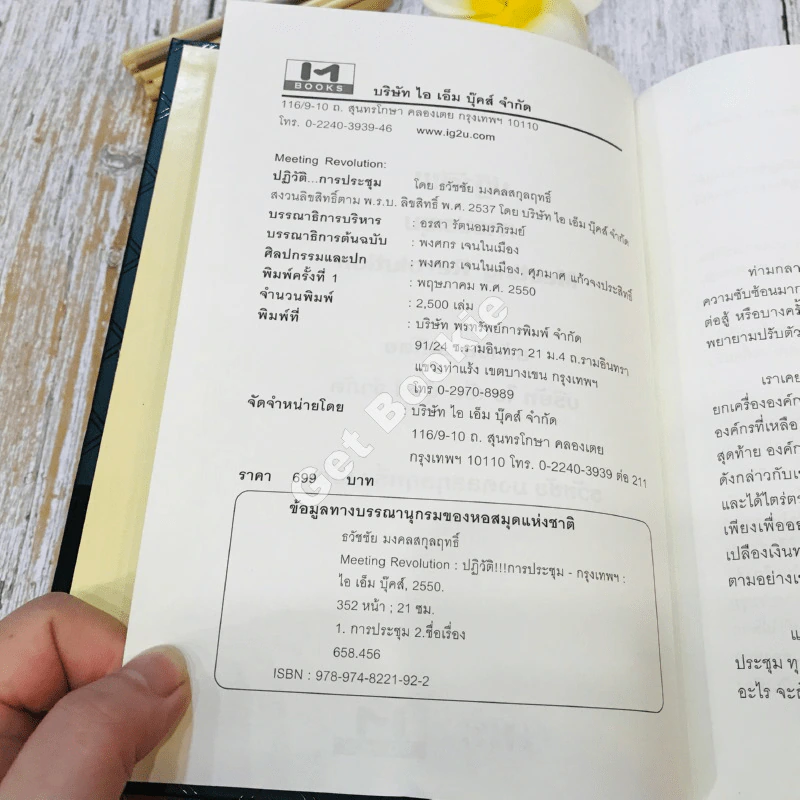 IM
BOOKS
บริษัท ไอ เอ็ม บุ๊คส์ จำกัด
116/9-10 ถ. สุนทรโกษา คลองเตย กรุงเทพฯ 10110
โทร. 0-2240-3939-46 www.ig2u.com
Meeting Revolution:
ปฏิวัติ...การประชุม โดย ธวัชชัย มงคลสกุลฤทธิ์
สงวนลิขสิทธิ์ตาม พ.ร.บ. ลิขสิทธิ์ พ.ศ. 2537 โดย บริษัท ไอ เอ็ม บุ๊คส์ จำกัด
บรรณาธิการบริหาร : อรสา รัตนอมรภิรมย์
บรรณาธิการต้นฉบับ : พงศกร เจนในเมือง
ศิลปกรรมและปก : พงศกร เจนในเมือง, ศุภมาศ แก้วจงประสิทธิ์
พิมพ์ครั้งที่ 1 : พฤษภาคม พ.ศ. 2550
จำนวนพิมพ์ : 2,500 เล่ม
พิมพ์ที่ : บริษัท พรทรัพย์การพิมพ์ จำกัด
91/24 ซ.รามอินทรา 21 ม.4 ถ.รามอินทรา
แขวงท่าแร้ง เขตบางเขน กรุงเทพฯ
โทร 0-2970-8989
จัดจำหน่ายโดย บริษัท ไอ เอ็ม บุ๊คส์ จำกัด
116/9-10 ถ. สุนทรโกษา คลองเตย
กรุงเทพฯ 10110 โทร. 0-2240-3939 ต่อ 211
ราคา 699 บาท
ข้อมูลทางบรรณานุกรมของหอสมุดแห่งชาติ
ธวัชชัย มงคลสกุลฤทธิ์
Meeting Revolution : ปฏิวัติ!!!การประชุม - กรุงเทพฯ :
ไอ เอ็ม บุ๊คส์, 2550.
352 หน้า ; 21 ซม.
1. การประชุม 2.ชื่อเรื่อง
658.456
ISBN : 978-974-8221-92-2
Get Bookie
ท่ามกลา
ความซับซ้อนมาก
ต่อสู้ หรือบางครั้
พยายามปรับตัว
เราเคย
ยกเครื่ององค์กร
องค์กรที่เหลือ
สุดท้าย องค์ก
ดังกล่าวกับเ
และได้ไตร่ตร
เพียงเพื่ออย
เปลืองเงินท
ตามอย่างเ
แ
ประชุม ทุ
อะไร จะ